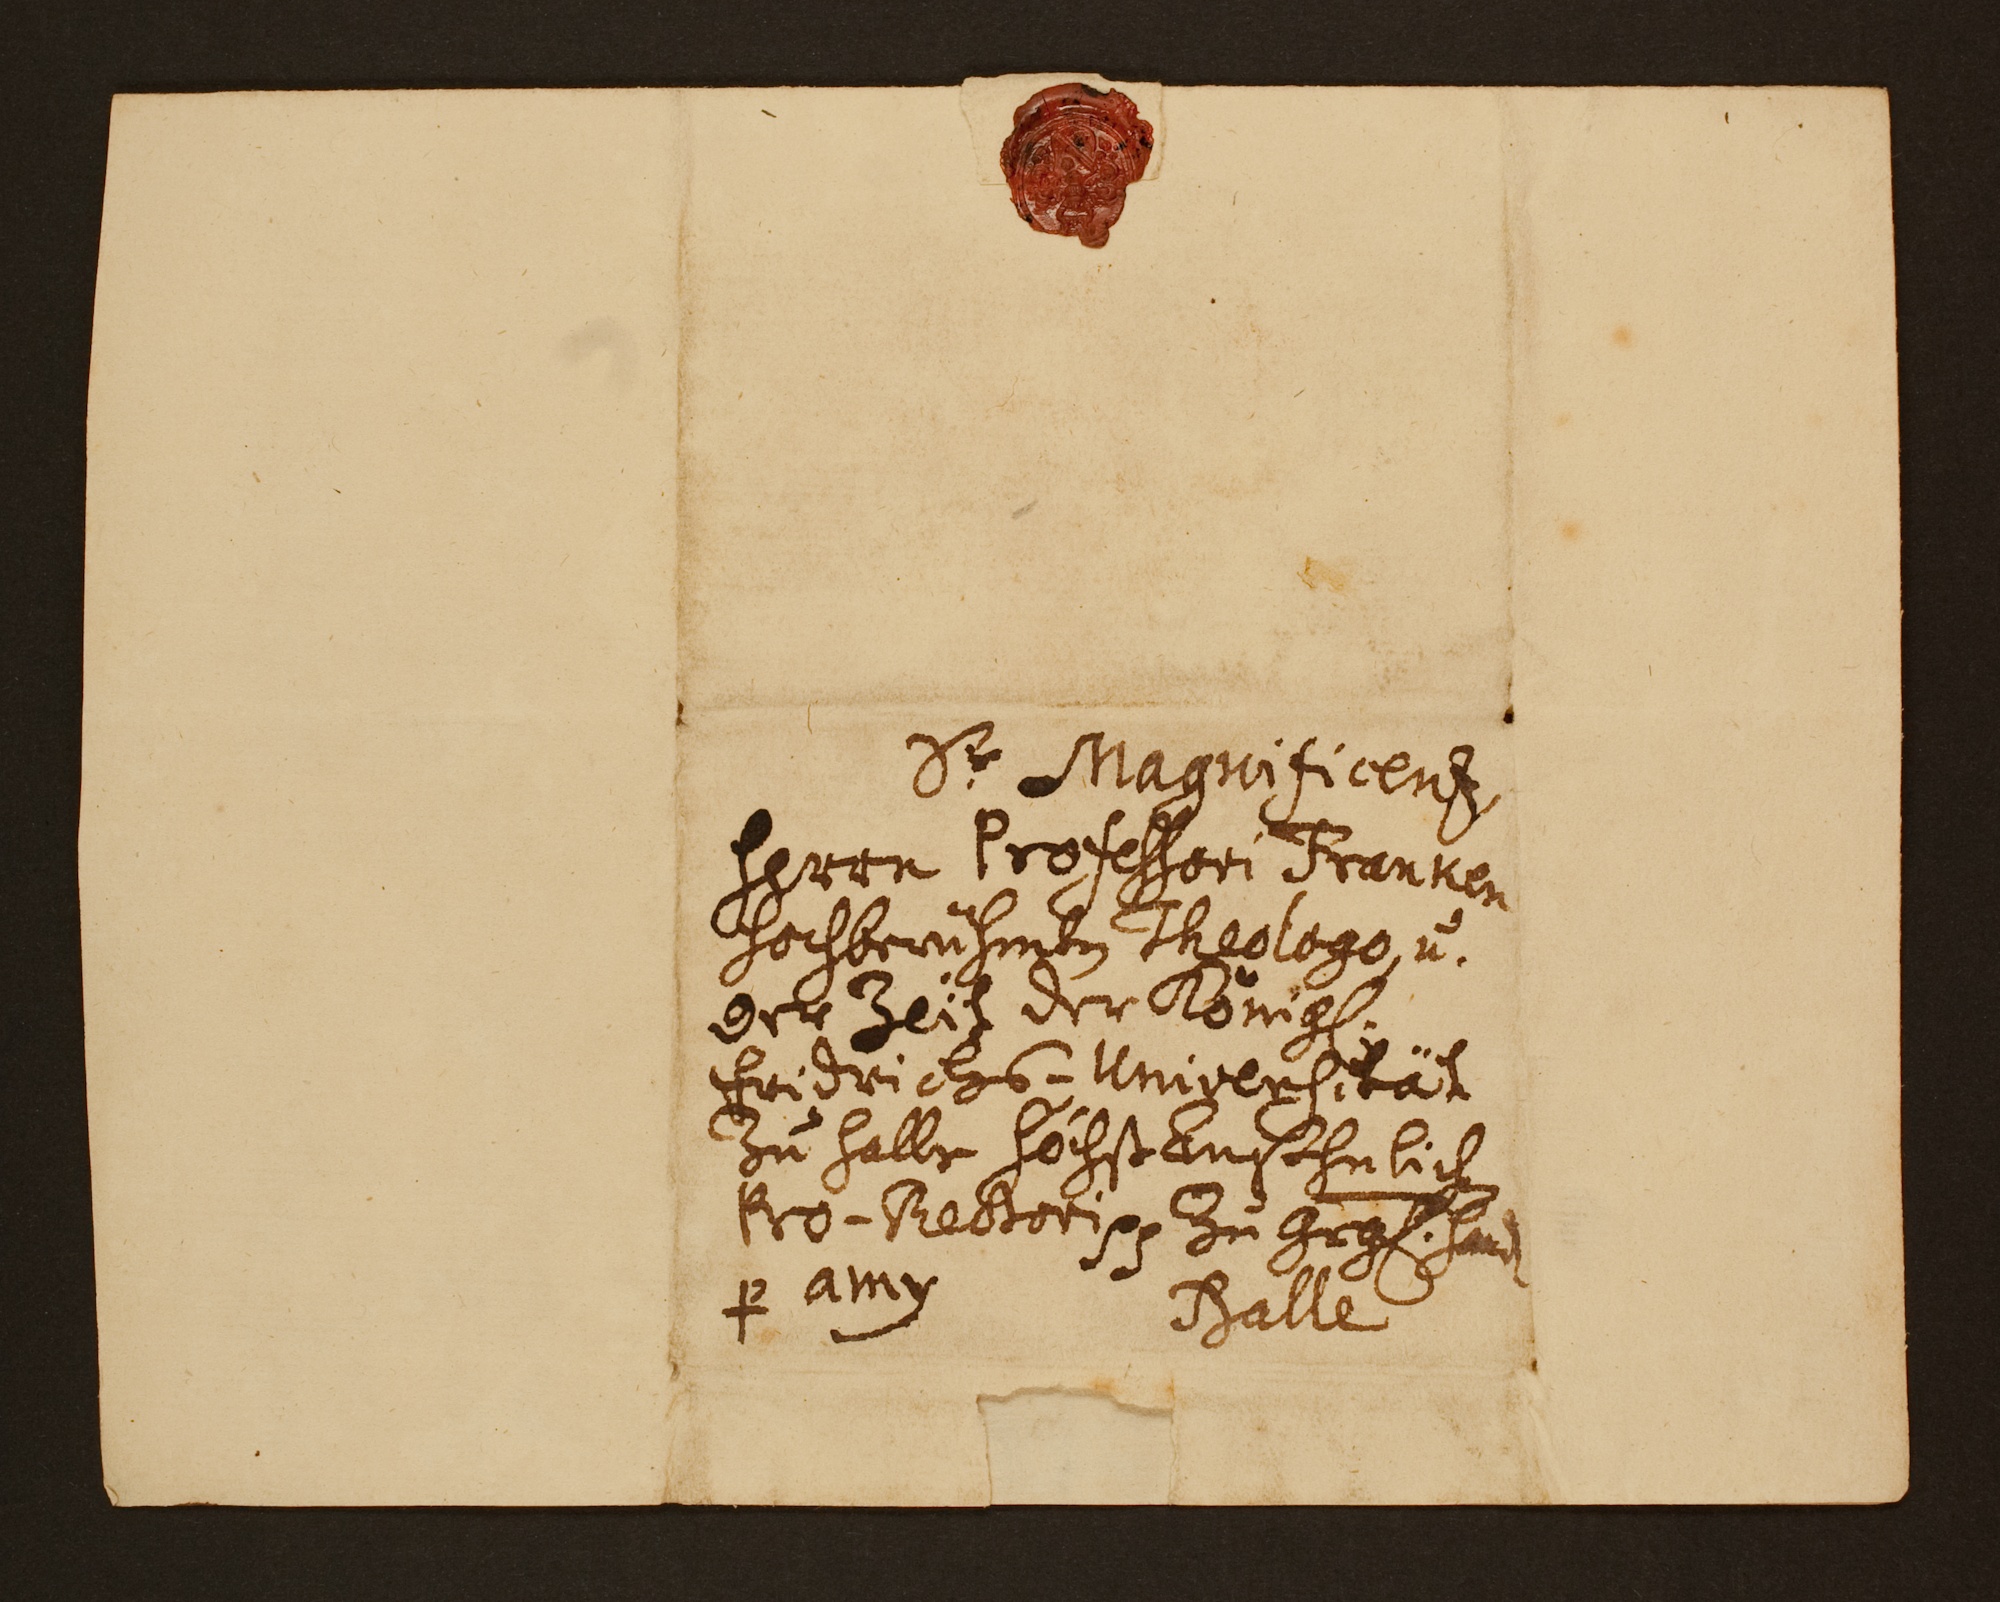 Sr Magnificenz,
Herrn Professori Franken
hochberühmten Theologo, u.
der Zeit der Königl.
Fridrichs-Universität
zu Halle höchstansehnlich
Pro-Rectori pp zu Hrgl. Hand
p amy Halle